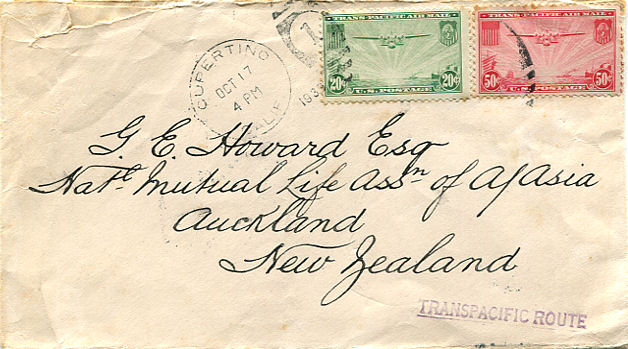 CUPERTINO
OCT 17
4 PM
CALIF.
TRANS-PACIFIC AIR MAIL
20¢ 20¢
U.S. POSTAGE
TRANS-PACIFIC AIR MAIL
50¢ 50¢
U.S. POSTAGE
G. E. Howard Esq
Nat^l. Mutual Life Ass^n of A/Asia
Auckland
New Zealand
TRANSPACIFIC ROUTE